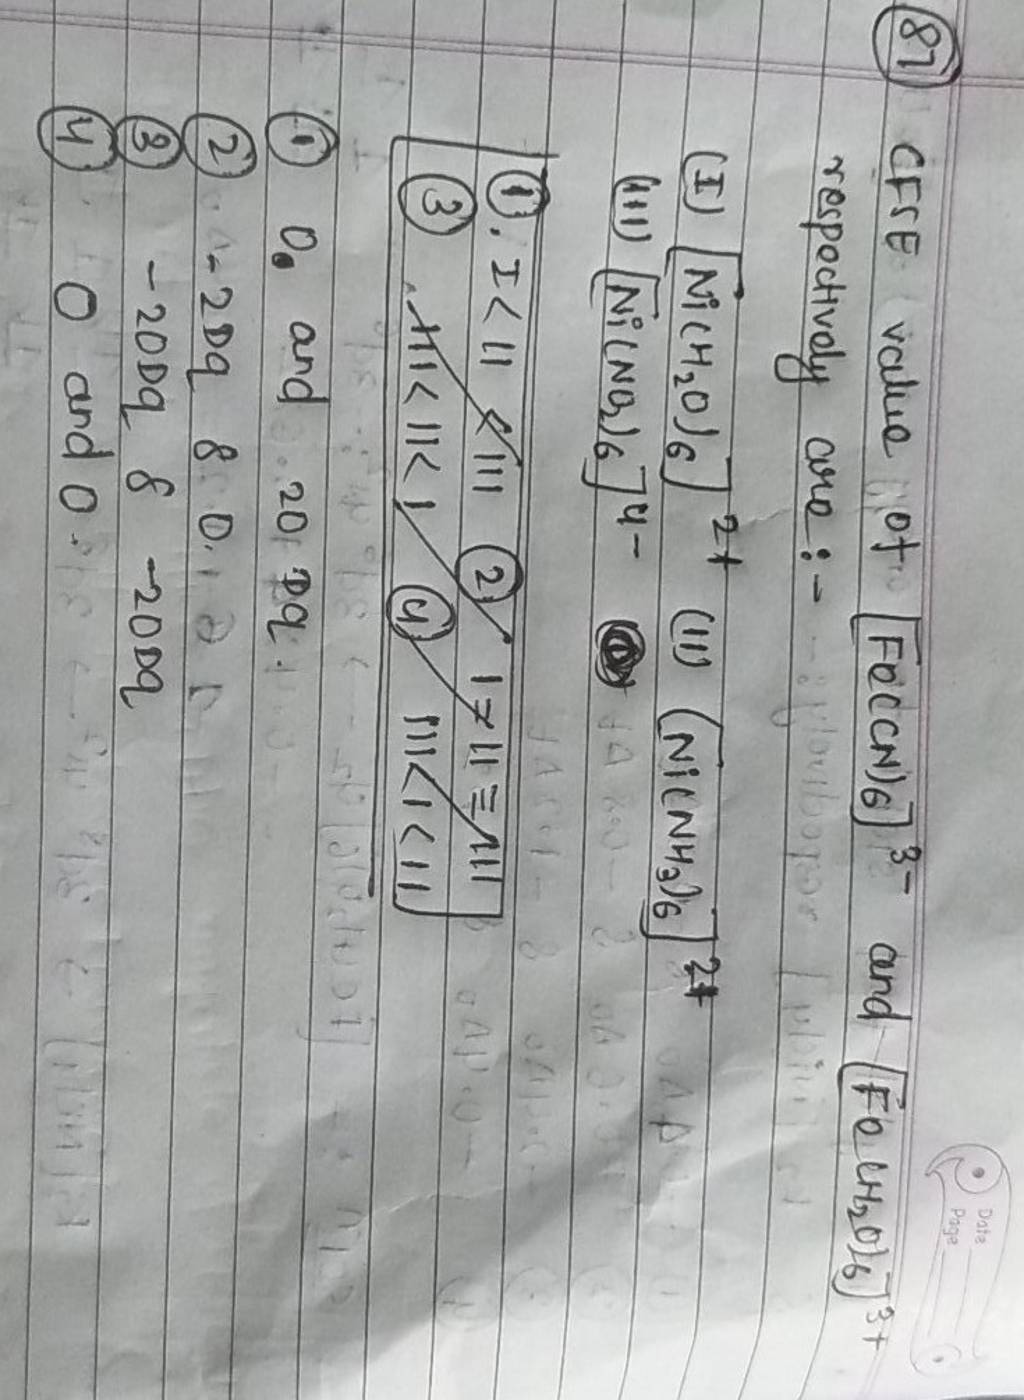 Date
Page
87 CFSE value of [Fe(CN)6]3- and [Fe(H2O)6]3+
respectively are :-
(I) [Ni(H2O)6]2+ (II) [Ni(NH3)6]2+
(III) [Ni(NO2)6]4-
① I < II < III ② I > II = III
③ III < II < I ④ III < I < II
① 0. and 20 Dq
② -2Dq & 0.
③ -20Dq & -20Dq
④ 0 and 0.